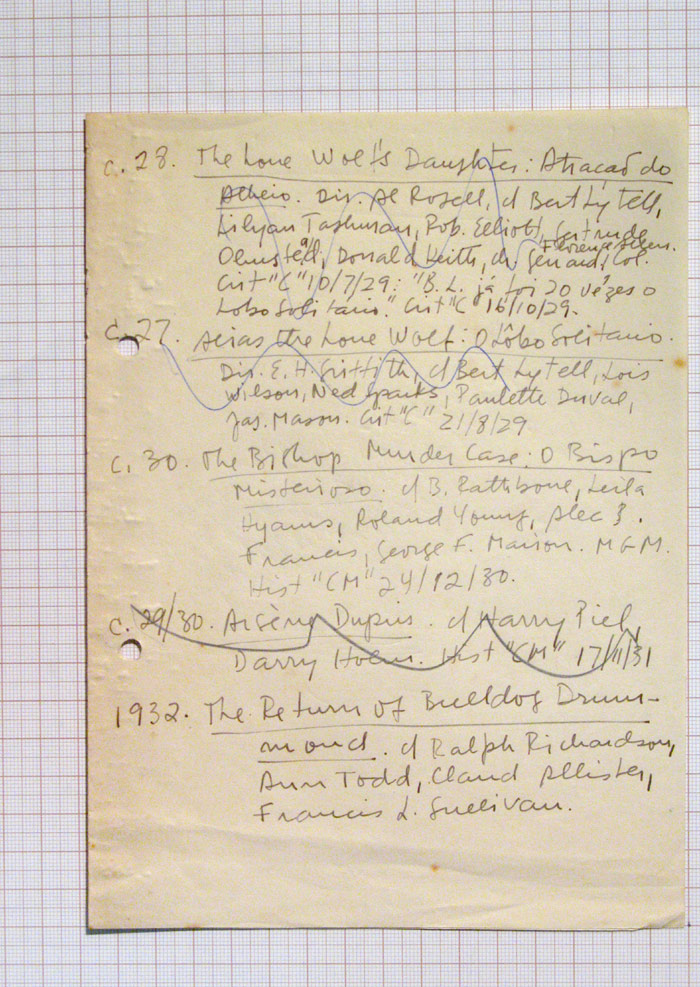 c. 28. The Lone Wolf's Daughter: Atração do
Alheio. Dir. Al Rogell, c/ Bert Lytell,
Lilyan Tashman, Rob. Elliott, Gertrude
Olmstead, Donald Keith, Florence Allen.
Gerrard, Col.
Crit "C" 10/7/29: "B. L. já foi 20 vêzes o
Lobo Solitário." Crit "C" 16/10/29.
c. 27. Alias the Lone Wolf: O Lôbo Solitario.
Dir. E. H. Griffith, c/ Bert Lytell, Lois
Wilson, Ned Sparks, Paulette Duval,
Jas. Mason. Crit "C" 21/8/29
c. 30. The Bishop Murder Case: O Bispo
Misterioso. c/ B. Rathbone, Leila
Hyams, Roland Young, Alec B.
Francis, George F. Marion. MGM.
Hist "CM" 24/12/30.
c. 29/30. Arsène Dupin. c/ Harry Piel,
Darry Holm. Hist "CM" 17/11/31
1932. The Return of Bulldog Drum-
mond. c/ Ralph Richardson,
Ann Todd, Claud Allister,
Francis L. Sullivan.